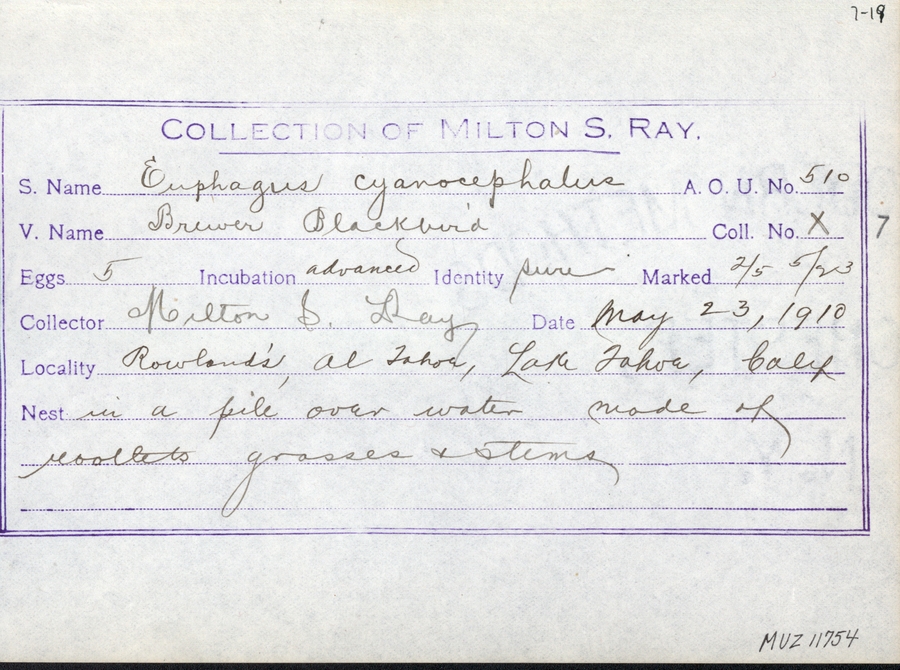 7-19
COLLECTION OF MILTON S. RAY.
S. Name Euphagus cyanocephalus A. O. U. No. 510
V. Name Brewer Blackbird Coll. No. X 7
Eggs 5 Incubation advanced Identity sure Marked 2/5 5/23
Collector Milton S. Ray Date May 23, 1910
Locality Rowland's, Al Tahoe, Lake Tahoe, Calif
Nest in a pile over water made of
rootlets grasses & stems
MUZ 11754